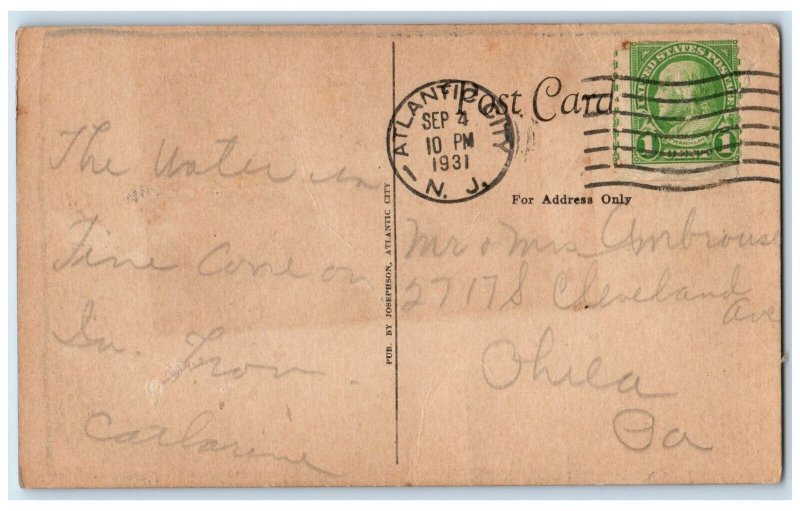 Post Card
ATLANTIC CITY
SEP 4
10 PM
1931
N. J.
UNITED STATES POSTAGE
FRANKLIN
1 1
For Address Only
PUB. BY JOSEPHSON, ATLANTIC CITY
The Water is
Fine Come on
In. From
Catharine
Mr & Mrs Ambrouse
2717 S Cleveland
Ave
Phila
Pa